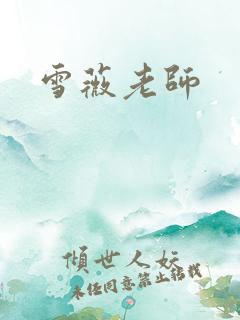 雪薇老師
傾世人妖
未經同意禁止轉載